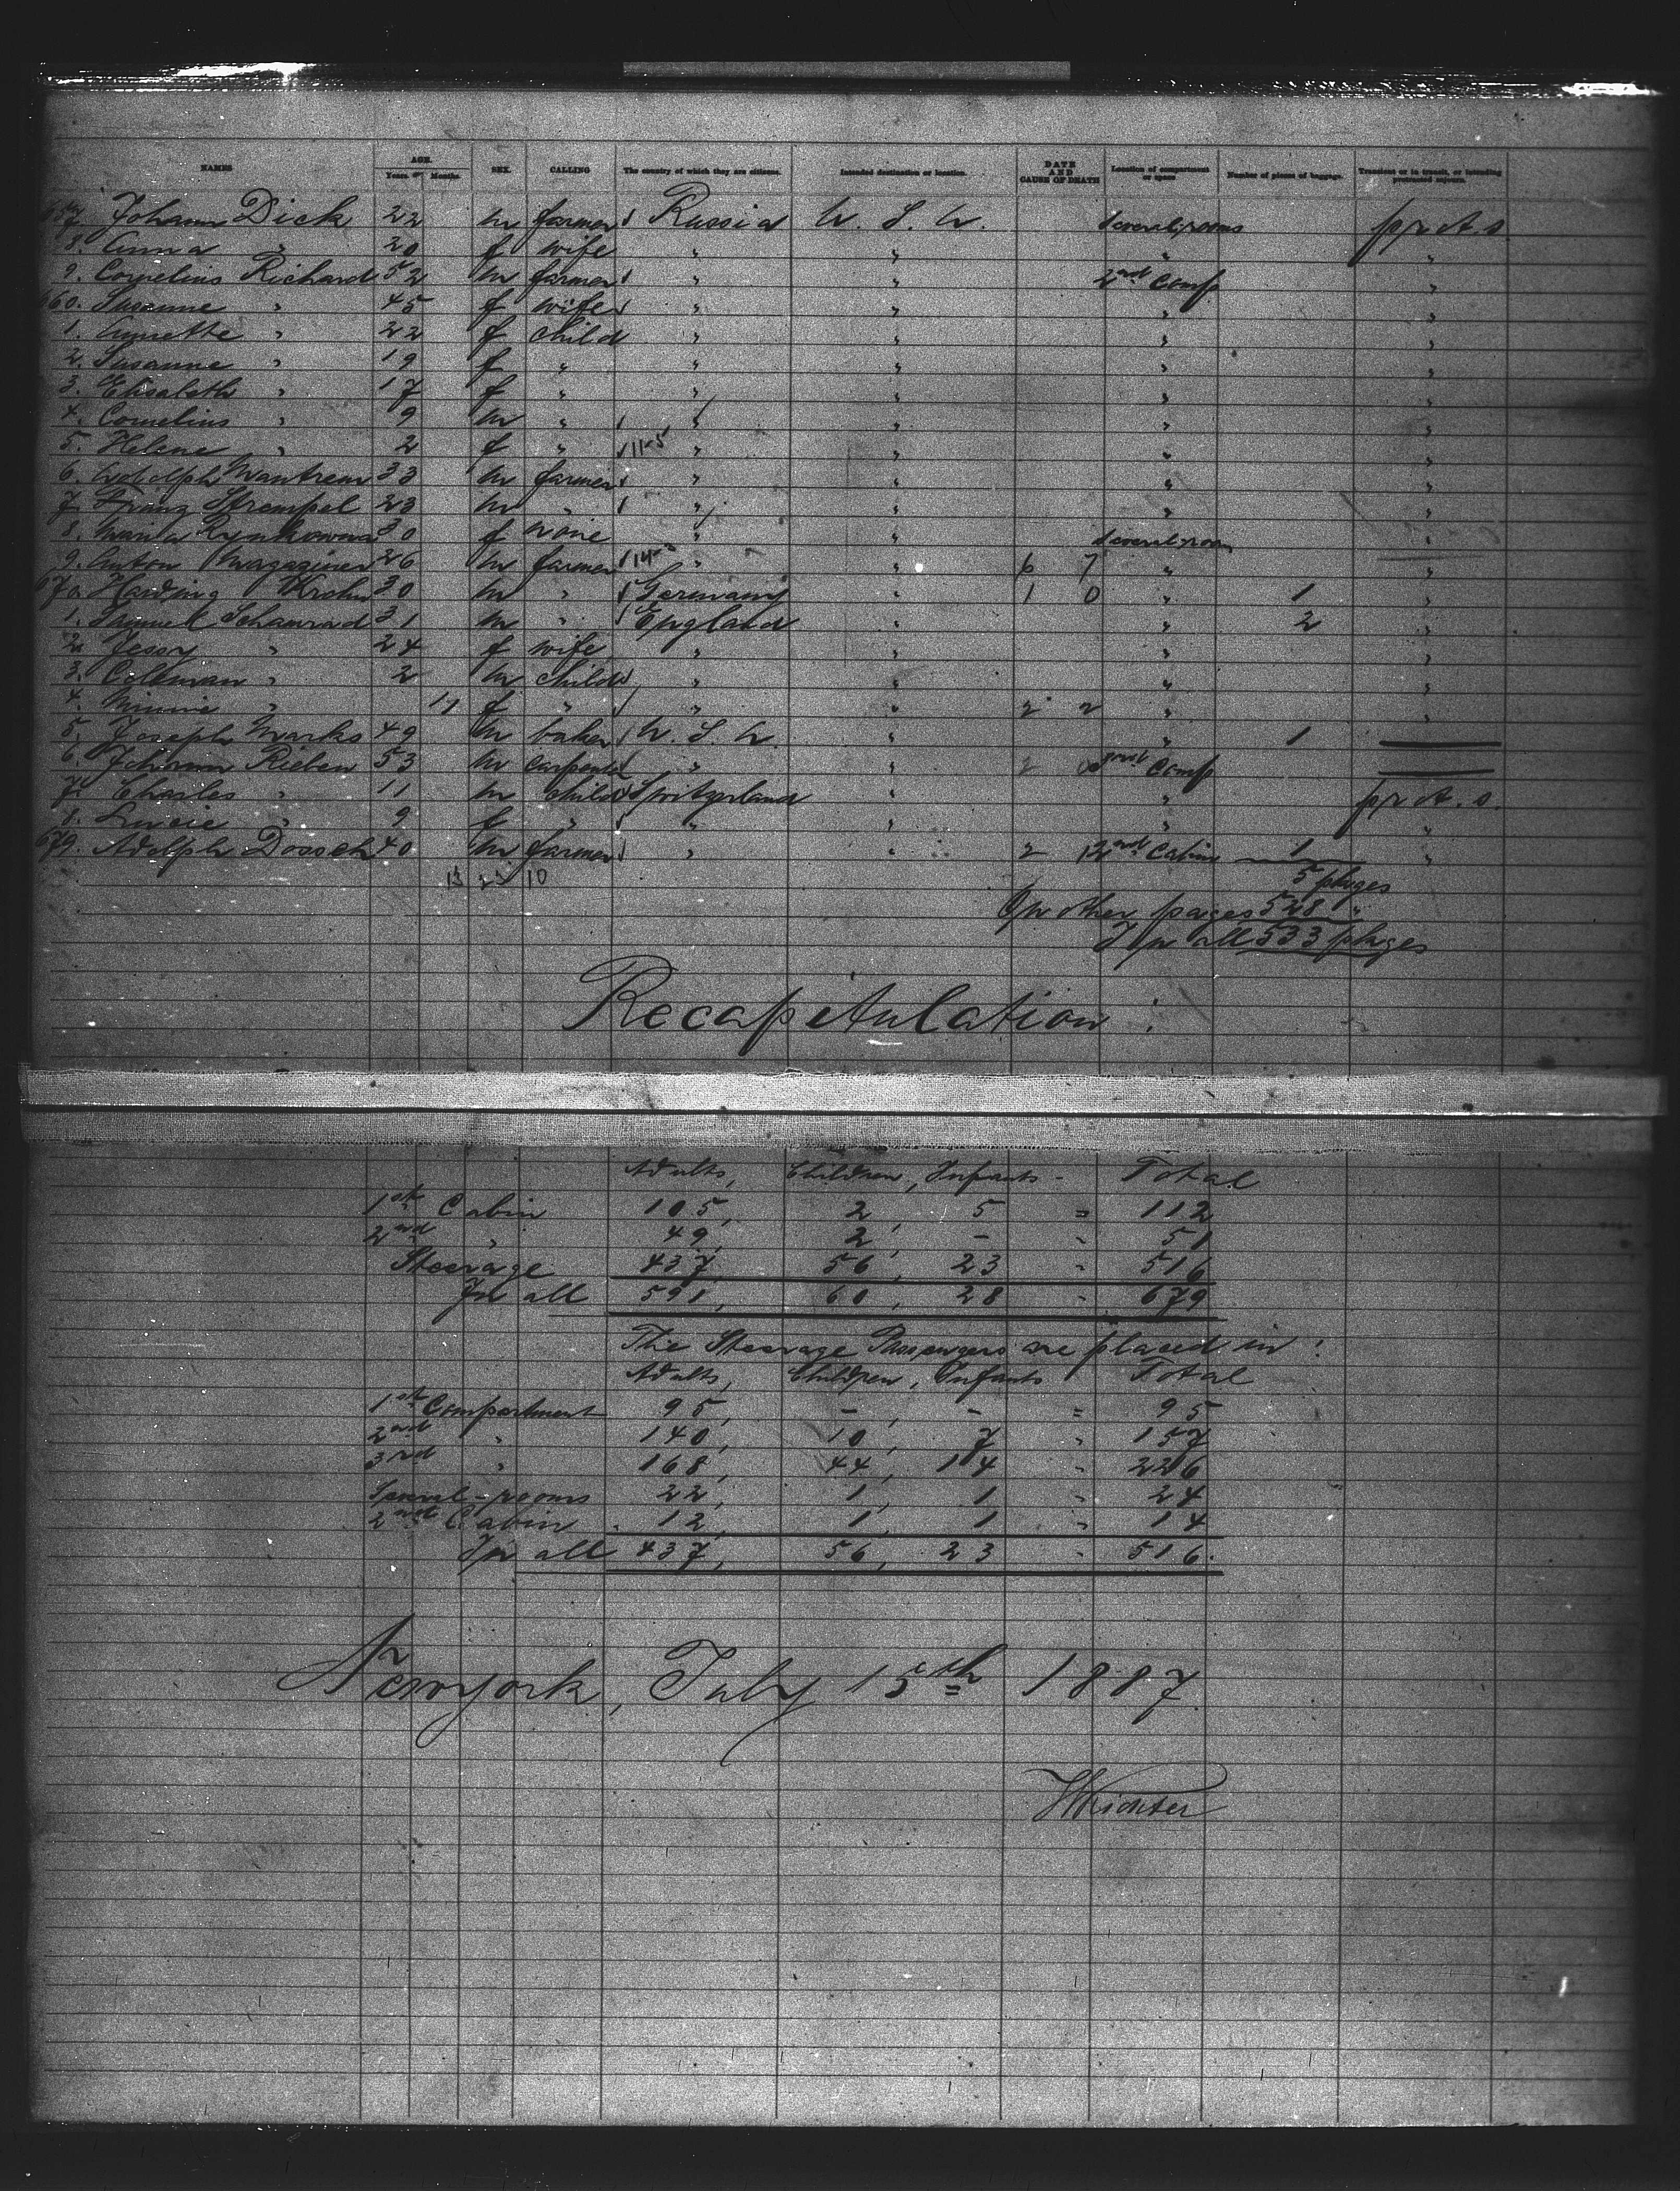 NAMES AGE. Years of Months. SEX. CALLING The country of which they are citizens. Intended destination or location. DATE AND CAUSE OF DEATH Location of compartment or space Number of pieces of baggage. Transient or in transit, or intending protracted sojourn.
657. Johann Dick 22 m farmer Russia U. S. A. Several rooms pr. A. s.
8. Anna " 20 f wife " " " "
9. Cornelius Richard 52 m farmer " " 2nd Comp. "
660. Susanne " 45 f wife " " " "
1. Annette " 22 f child " " " "
2. Susanne " 19 f " " " " "
3. Elisabeth " 17 f " " " " "
4. Cornelius " 9 m " " " " "
5. Helene " 2 f " 11-5 " " " "
6. Adolph 33 m farmer " " " "
7. Franz Strempel 23 m " " " " "
8. Maria 30 f none " " Several room "
9. Anton Magaziner 26 m farmer 14- " " 6 7 " "
670. Harding Krohn 30 m " Germany " 1 0 " 1 "
1. Samuel 31 m " England " " 2 "
2. Jessy " 24 f wife " " " "
3. Colkman " 2 m child " " " "
4. Minnie " 11 f " " " 2 2 " "
5. Joseph Marks 49 m baker U. S. A. " " 1
6. Johann Rieben 53 m carpenter " " 2 Comp
7. Charles " 11 m child Switzerland " " pr. A. s.
8. Lucie " 9 f " " " " "
679. Adolph Dossek 40 m farmer " " 2 1 2nd Cabin 1 "
13 23 10 5 pkges
On other pages 528 "
In all 533 pkges
Recapitulation :
Adults, Children, Infants - Total
1st Cabin 105, 2, 5 = 112
2nd " 49, 2, - " 51
Steerage 437, 56, 23 " 516
In all 591, 60, 28 " 679
The Steerage Passengers are placed in :
Adults, Children, Infants Total
1st Compartment 95, -, - = 95
2nd " 140, 10, 7 " 157
3rd " 168, 44, 14 " 226
Several-rooms 22, 1, 1 " 24
2nd Cabin 12, 1, 1 " 14
In all 437, 56, 23 " 516.
Newyork, July 15th 1887.
Richter